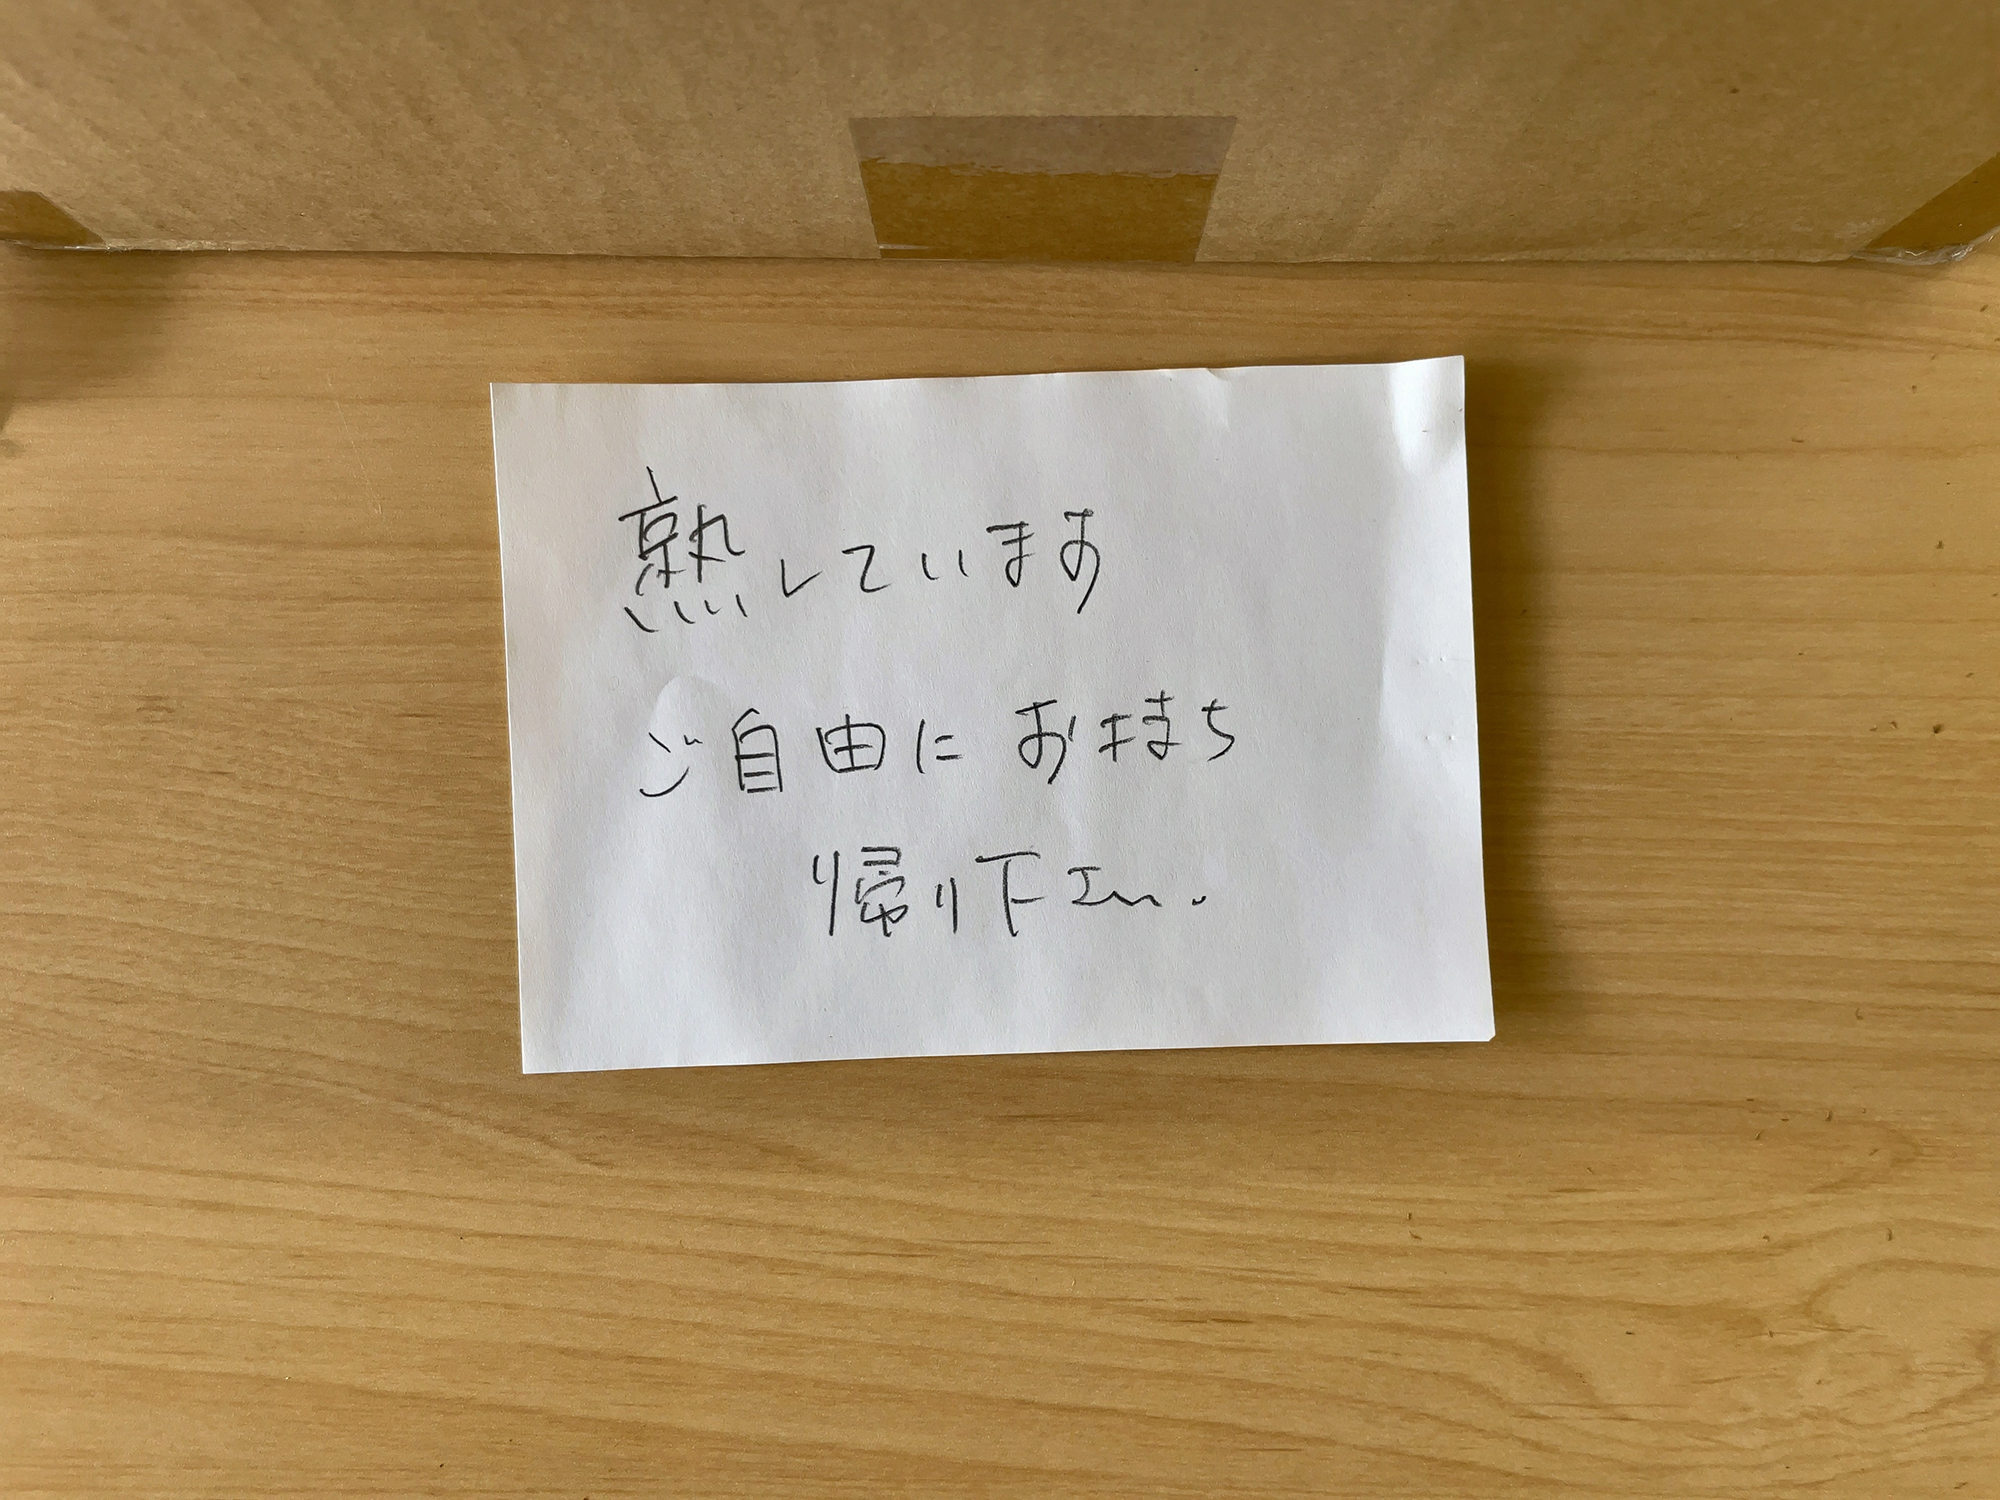 熟しています
ご自由にお持ち
帰り下さい。